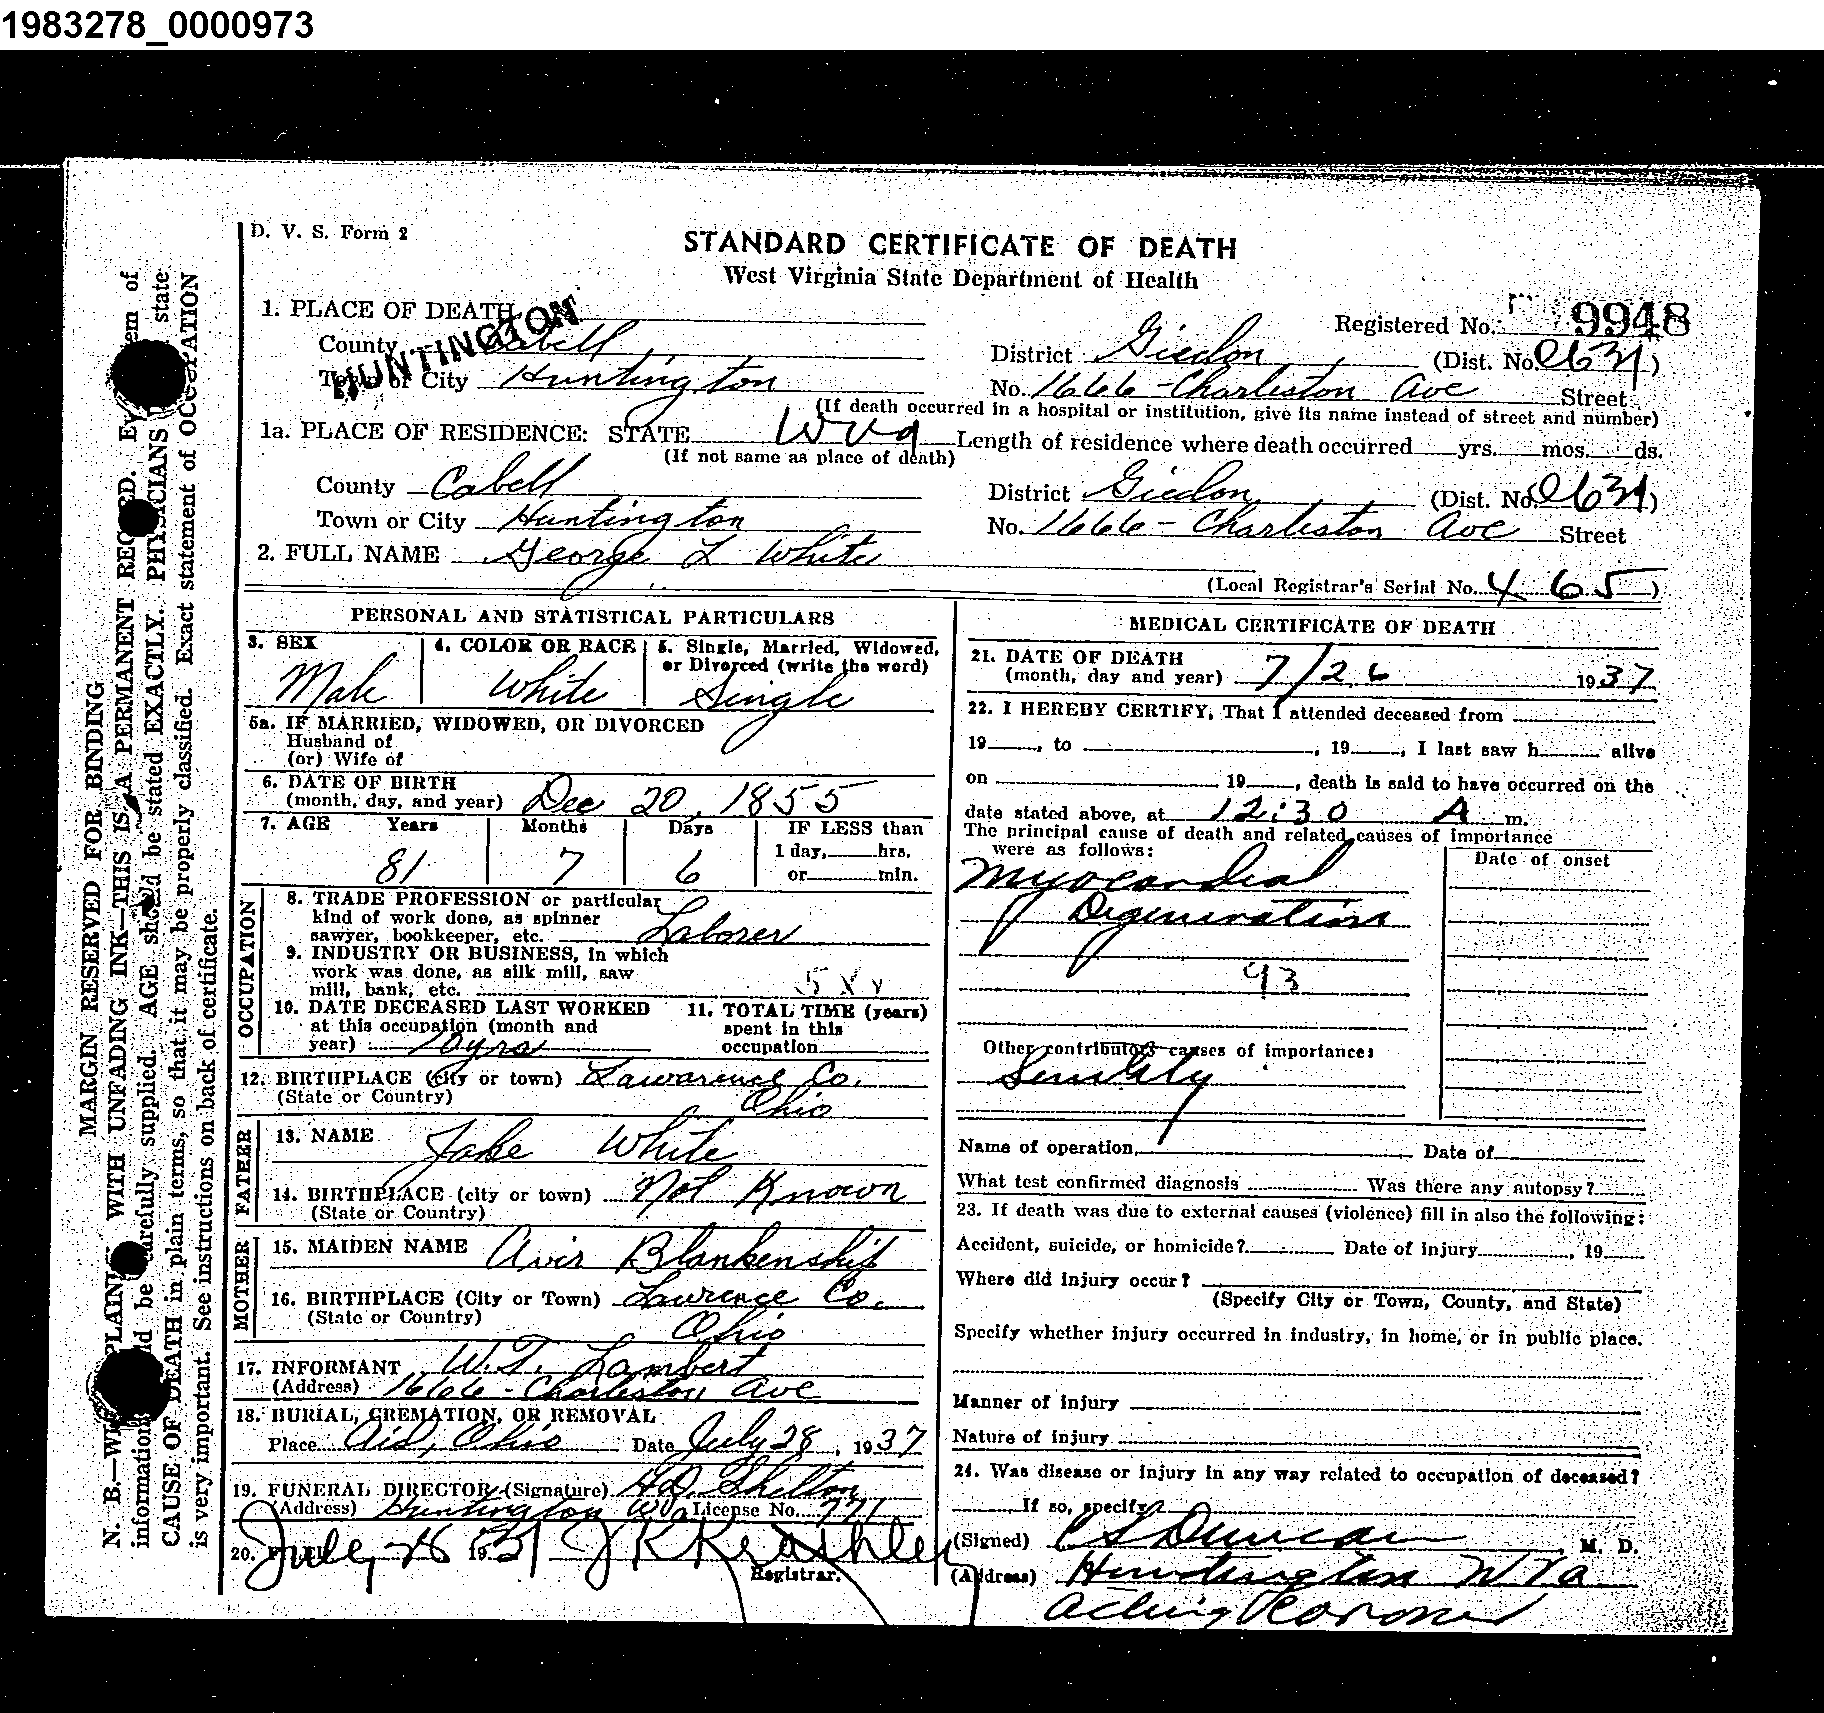 1983278_0000973
D. V. S. Form 2
STANDARD CERTIFICATE OF DEATH
West Virginia State Department of Health
1. PLACE OF DEATH
HUNTINGTON
Registered No. 9948
County Cabell District Giedon (Dist. No. 0631)
Town or City Huntington No. 1666 - Charleston Ave Street
(If death occurred in a hospital or institution, give its name instead of street and number)
1a. PLACE OF RESIDENCE: STATE W Va Length of residence where death occurred yrs. mos. ds.
(If not same as place of death)
County Cabell District Giedon (Dist. No. 0631)
Town or City Huntington No. 1666 - Charleston Ave Street
2. FULL NAME George L White
(Local Registrar's Serial No. 465)
PERSONAL AND STATISTICAL PARTICULARS
3. SEX 4. COLOR OR RACE 5. Single, Married, Widowed,
or Divorced (write the word)
Male White Single
5a. IF MARRIED, WIDOWED, OR DIVORCED
Husband of
(or) Wife of
6. DATE OF BIRTH
(month, day, and year) Dec 20, 1855
7. AGE Years Months Days IF LESS than
1 day, hrs.
81 7 6 or min.
OCCUPATION
8. TRADE PROFESSION or particular
kind of work done, as spinner
sawyer, bookkeeper, etc. Laborer
9. INDUSTRY OR BUSINESS, in which
work was done, as silk mill, saw
mill, bank, etc.
10. DATE DECEASED LAST WORKED 11. TOTAL TIME (years)
at this occupation (month and spent in this
year) 10 yrs occupation
12. BIRTHPLACE (city or town) Lawarence Co.
(State or Country) Ohio
FATHER
13. NAME Jake White
14. BIRTHPLACE (city or town) Not Known
(State or Country)
MOTHER
15. MAIDEN NAME Avir Blankenship
16. BIRTHPLACE (City or Town) Lawrence Co.
(State or Country) Ohio
17. INFORMANT W.T. Lambert
(Address) 1666 - Charleston Ave
18. BURIAL, CREMATION, OR REMOVAL
Place Aid, Ohio Date July 28, 1937
19. FUNERAL DIRECTOR (Signature) H.D. Shelton
(Address) Huntington W Va License No. 771
20. July 28 19
Registrar.
MEDICAL CERTIFICATE OF DEATH
21. DATE OF DEATH
(month, day and year) 7/26 1937
22. I HEREBY CERTIFY, That I attended deceased from
19 , to , 19 , I last saw h alive
on 19 , death is said to have occurred on the
date stated above, at 12:30 A m.
The principal cause of death and related causes of importance
were as follows: Date of onset
Myocardial
Degeneration
93
Other contributory causes of importance:
Senility
Name of operation Date of
What test confirmed diagnosis Was there any autopsy?
23. If death was due to external causes (violence) fill in also the following:
Accident, suicide, or homicide? Date of injury , 19
Where did injury occur?
(Specify City or Town, County, and State)
Specify whether injury occurred in industry, in home, or in public place.
Manner of injury
Nature of injury
24. Was disease or injury in any way related to occupation of deceased?
If so, specify
(Signed) C S Duncan M. D.
(Address) Huntington W Va
Acting Coroner
MARGIN RESERVED FOR BINDING
WITH UNFADING INK—THIS IS A PERMANENT
carefully supplied. AGE should be stated EXACTLY. PHYSICIANS state
CAUSE OF DEATH in plain terms, so that it may be properly classified. Exact statement of OCCUPATION
is very important. See instructions on back of certificate.